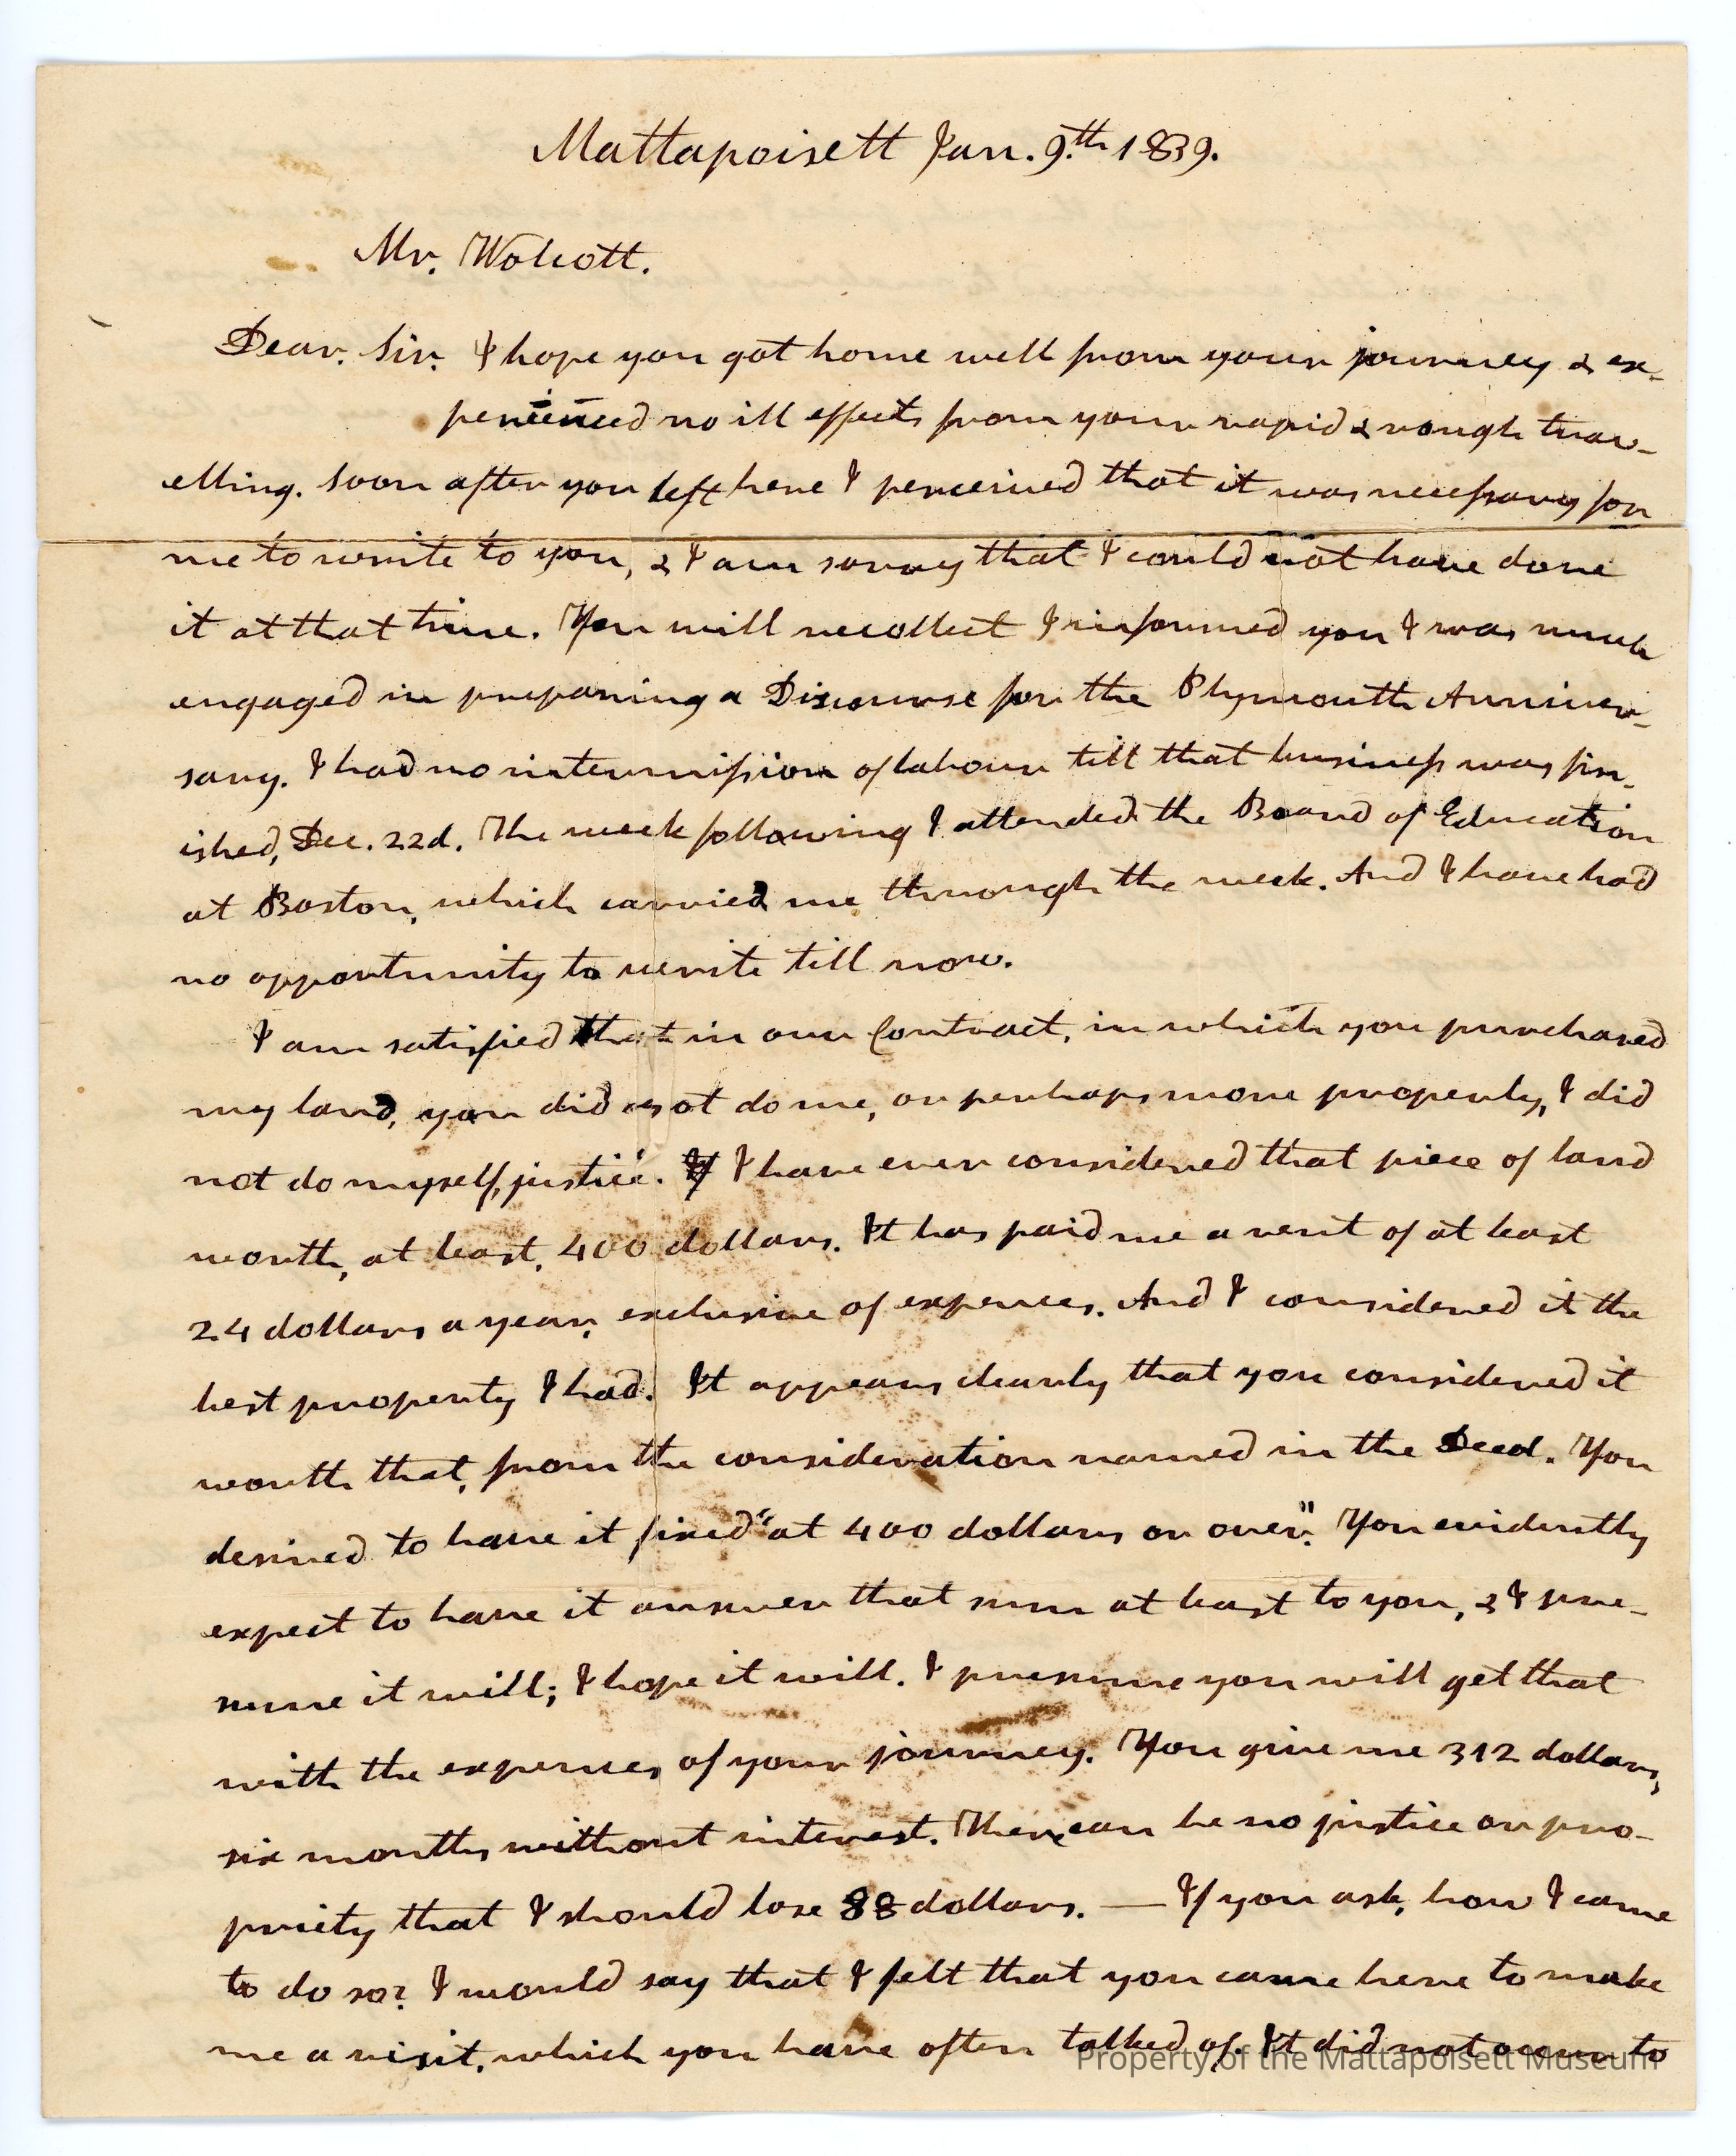 Mattapoisett Jan. 9.th 1839.
Mr. Wolcott.
Dear. Sir. I hope you got home well from your journey & ex-
perienced no ill effects from your rapid & rough trav-
elling. Soon after you left here I perceived that it was necessary for
me to write to you, & I am sorry that I could not have done
it at that time. You will recollect I informed you I was much
engaged in preparing a Discourse for the Plymouth Anniver-
sary. I had no intermission of labour till that business was fin-
ished, Dec. 22d. The week following I attended the Board of Education
at Boston, which carried me through the week. And I have had
no opportunity to write till now.
I am satisfied that in our Contract, in which you purchased
my land, you did not do me, or perhaps more properly, I did
not do myself, justice. I have ever considered that piece of land
worth, at least, 400 dollars. It has paid me a rent of at least
24 dollars a year, exclusive of expences. And I considered it the
best property I had. It appears clearly that you considered it
worth that, from the consideration named in the Deed. You
desired to have it fixed "at 400 dollars or over". You evidently
expect to have it answer that sum at least to you, & I pre-
sume it will; I hope it will. I presume you will get that
with the expences of your journey. You give me 312 dollars,
six months without interest. There can be no justice or pro-
priety that I should lose 88 dollars. — If you ask, how I came
to do so? I would say that I felt that you came here to make
me a visit, which you have often talked of. It did not occur to
Property of the Mattapoisett Museum